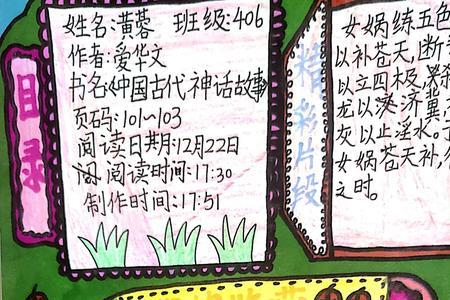 姓名:黄蓉 班级:406
作者:爱华文
书名:中国古代神话故事
页码:101~103
阅读日期:12月22日
阅读时间:17:30
制作时间:17:51
目录
精彩片段
女娲练五色
以补苍天,断
以立四极,杀
龙以济冀
灰以止淫水。
女娲苍天补,
之时。